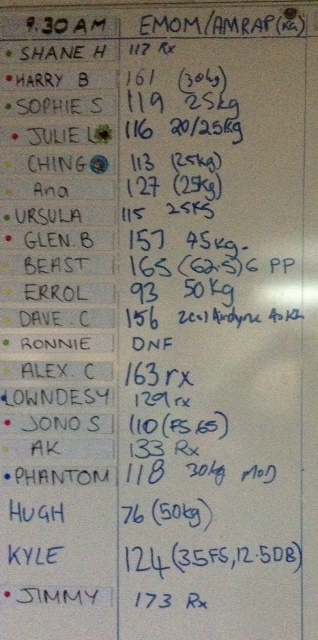 9.30 AM EMOM/AMRAP (KG)
SHANE H 117 Rx
HARRY B 161 (30kg)
SOPHIE S 119 25kg
JULIE L 116 20/25kg
CHING 113 (25kg)
Ana 127 (25kg)
URSULA 115 25KG
GLEN.B 157 45kg.
BEAST 165 (62.5) 6 PP
ERROL 93 50kg
DAVE.C 156 Airdyne
RONNIE DNF
ALEX.C 163 rx
LOWNDESY 129 rx
JONO S 110 (FS 65)
AK 133 Rx
PHANTOM 118 30kg MOD
HUGH 76 (50kg)
KYLE 124 (35FS, 12.5DB)
JIMMY 173 Rx